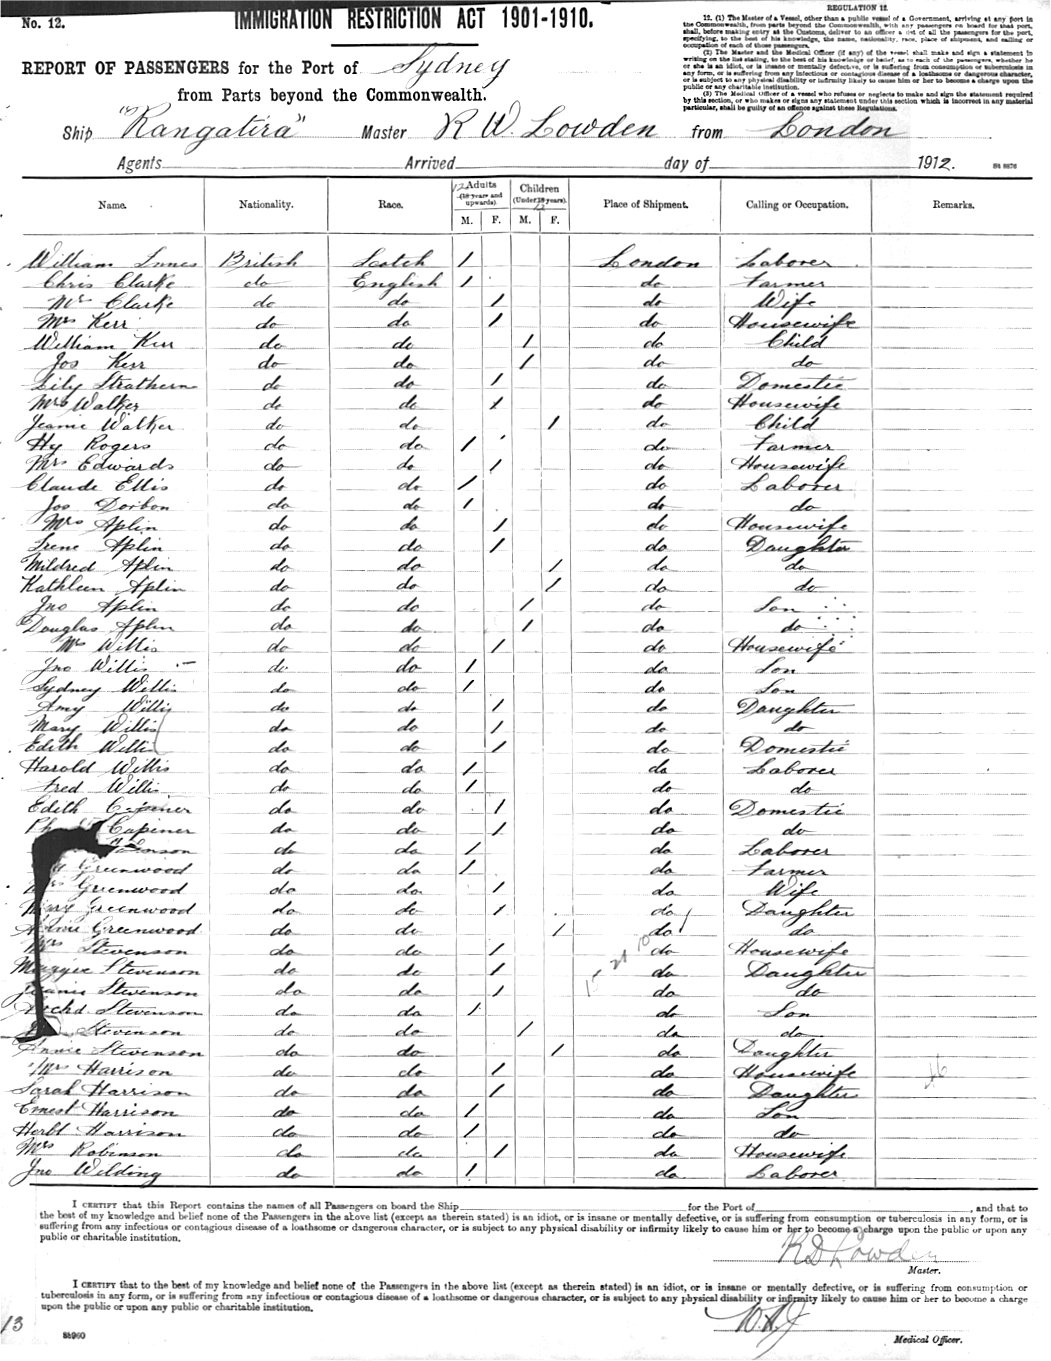 No. 12.
IMMIGRATION RESTRICTION ACT 1901-1910.
REGULATION 12.
12. (1) The Master of a Vessel, other than a public vessel of a Government, arriving at any port in
the Commonwealth from parts beyond the Commonwealth, with any passengers on board for that port,
shall, before making entry at the Customs, deliver to an officer a list of all the passengers for the port,
specifying, to the best of his knowledge, the name, nationality, race, place of shipment, and calling or
occupation of each of those passengers.
(2) The Master and the Medical Officer (if any) of the vessel shall make and sign a statement in
writing on the list, stating, to the best of his knowledge or belief, as to each of the passengers, whether he
or she is an idiot, or is insane or mentally defective, or is suffering from consumption or tuberculosis in
any form, or is suffering from any infectious or contagious disease of a loathsome or dangerous character,
or is subject to any physical disability or infirmity likely to cause him or her to become a charge upon the
public or any public or charitable institution.
(3) The Medical Officer of a vessel who refuses or neglects to make and sign the statement required
by this section, or who makes or signs any statement under this section which is incorrect in any material
particular, shall be guilty of an offence against these Regulations.
REPORT OF PASSENGERS for the Port of Sydney
from Parts beyond the Commonwealth.
Ship "Rangatira" Master R W. Lowden from London
Agents Arrived day of 1912.
Name. Nationality. Race. 12 Adults (18 years and upwards). M. F. Children (Under 18 years). 12 M. F. Place of Shipment. Calling or Occupation. Remarks.
William Innes British Scotch 1 London Laborer
Chris Clarke do English 1 do Farmer
Mrs Clarke do do 1 do Wife
Mrs Kerr do do 1 do Housewife
William Kerr do do 1 do Child
Jos Kerr do do 1 do do
Lily Strathern do do 1 do Domestic
Mrs Walker do do 1 do Housewife
Jeanie Walker do do 1 do Child
Hy Rogers do do 1 do Farmer
Mrs Edwards do do 1 do Housewife
Claude Ellis do do 1 do Laborer
Jos Dorbon do do 1 do do
Mrs Aplin do do 1 do Housewife
Irene Aplin do do 1 do Daughter
Mildred Aplin do do 1 do do
Kathleen Aplin do do 1 do do
Jno Aplin do do 1 do Son
Douglas Aplin do do 1 do do
Mrs Willis do do 1 do Housewife
Jno Willis do do 1 do Son
Sydney Willis do do 1 do Son
Amy Willis do do 1 do Daughter
Mary Willis do do 1 do do
Edith Willis do do 1 do Domestic
Harold Willis do do 1 do Laborer
Fred Willis do do 1 do do
Edith Capener do do 1 do Domestic
Capener do do 1 do do
do do 1 do Laborer
Greenwood do do 1 do Farmer
Mrs Greenwood do do 1 do Wife
Mary Greenwood do do 1 do Daughter
Greenwood do do 1 do do
Mrs Stevenson do do 1 do Housewife
Maggie Stevenson do do 1 do Daughter
Jeanie Stevenson do do 1 do do
Archd Stevenson do do 1 do Son
Stevenson do do 1 do do
Annie Stevenson do do 1 do Daughter
Mrs Harrison do do 1 do Housewife
Sarah Harrison do do 1 do Daughter
Ernest Harrison do do 1 do Son
Herbt Harrison do do 1 do do
Mrs Robinson do do 1 do Housewife
Jno Wilding do do 1 do Laborer
46
I CERTIFY that this Report contains the names of all Passengers on board the Ship for the Port of , and that to
the best of my knowledge and belief none of the Passengers in the above list (except as therein stated) is an idiot, or is insane or mentally defective, or is suffering from consumption or tuberculosis in any form, or is
suffering from any infectious or contagious disease of a loathsome or dangerous character, or is subject to any physical disability or infirmity likely to cause him or her to become a charge upon the public or upon any
public or charitable institution.
Lowden
Master.
I CERTIFY that to the best of my knowledge and belief none of the Passengers in the above list (except as therein stated) is an idiot, or is insane or mentally defective, or is suffering from consumption or
tuberculosis in any form, or is suffering from any infectious or contagious disease of a loathsome or dangerous character, or is subject to any physical disability or infirmity likely to cause him or her to become a charge
upon the public or upon any public or charitable institution.
13
Medical Officer.